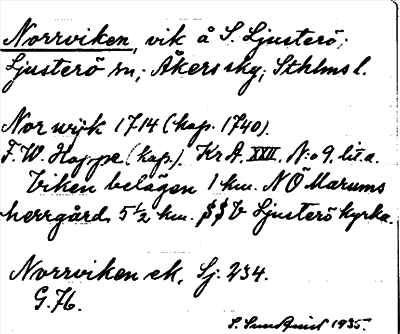 Norrviken, vik å S. Ljusterö;
Ljusterö sn; Åkers sky; Sthlms l.
Nor wijk 1714 (kop. 1740).
F. W. Hoppe (kop.). Kr A. XXII. N:o 9. lit a.
Viken belägen 1 km. NÖ Marums
herrgård, 5½ km. SSV Ljusterö kyrka.
Norrviken ek, Sj. 234.
G. 76.
S. Sundquist 1935.